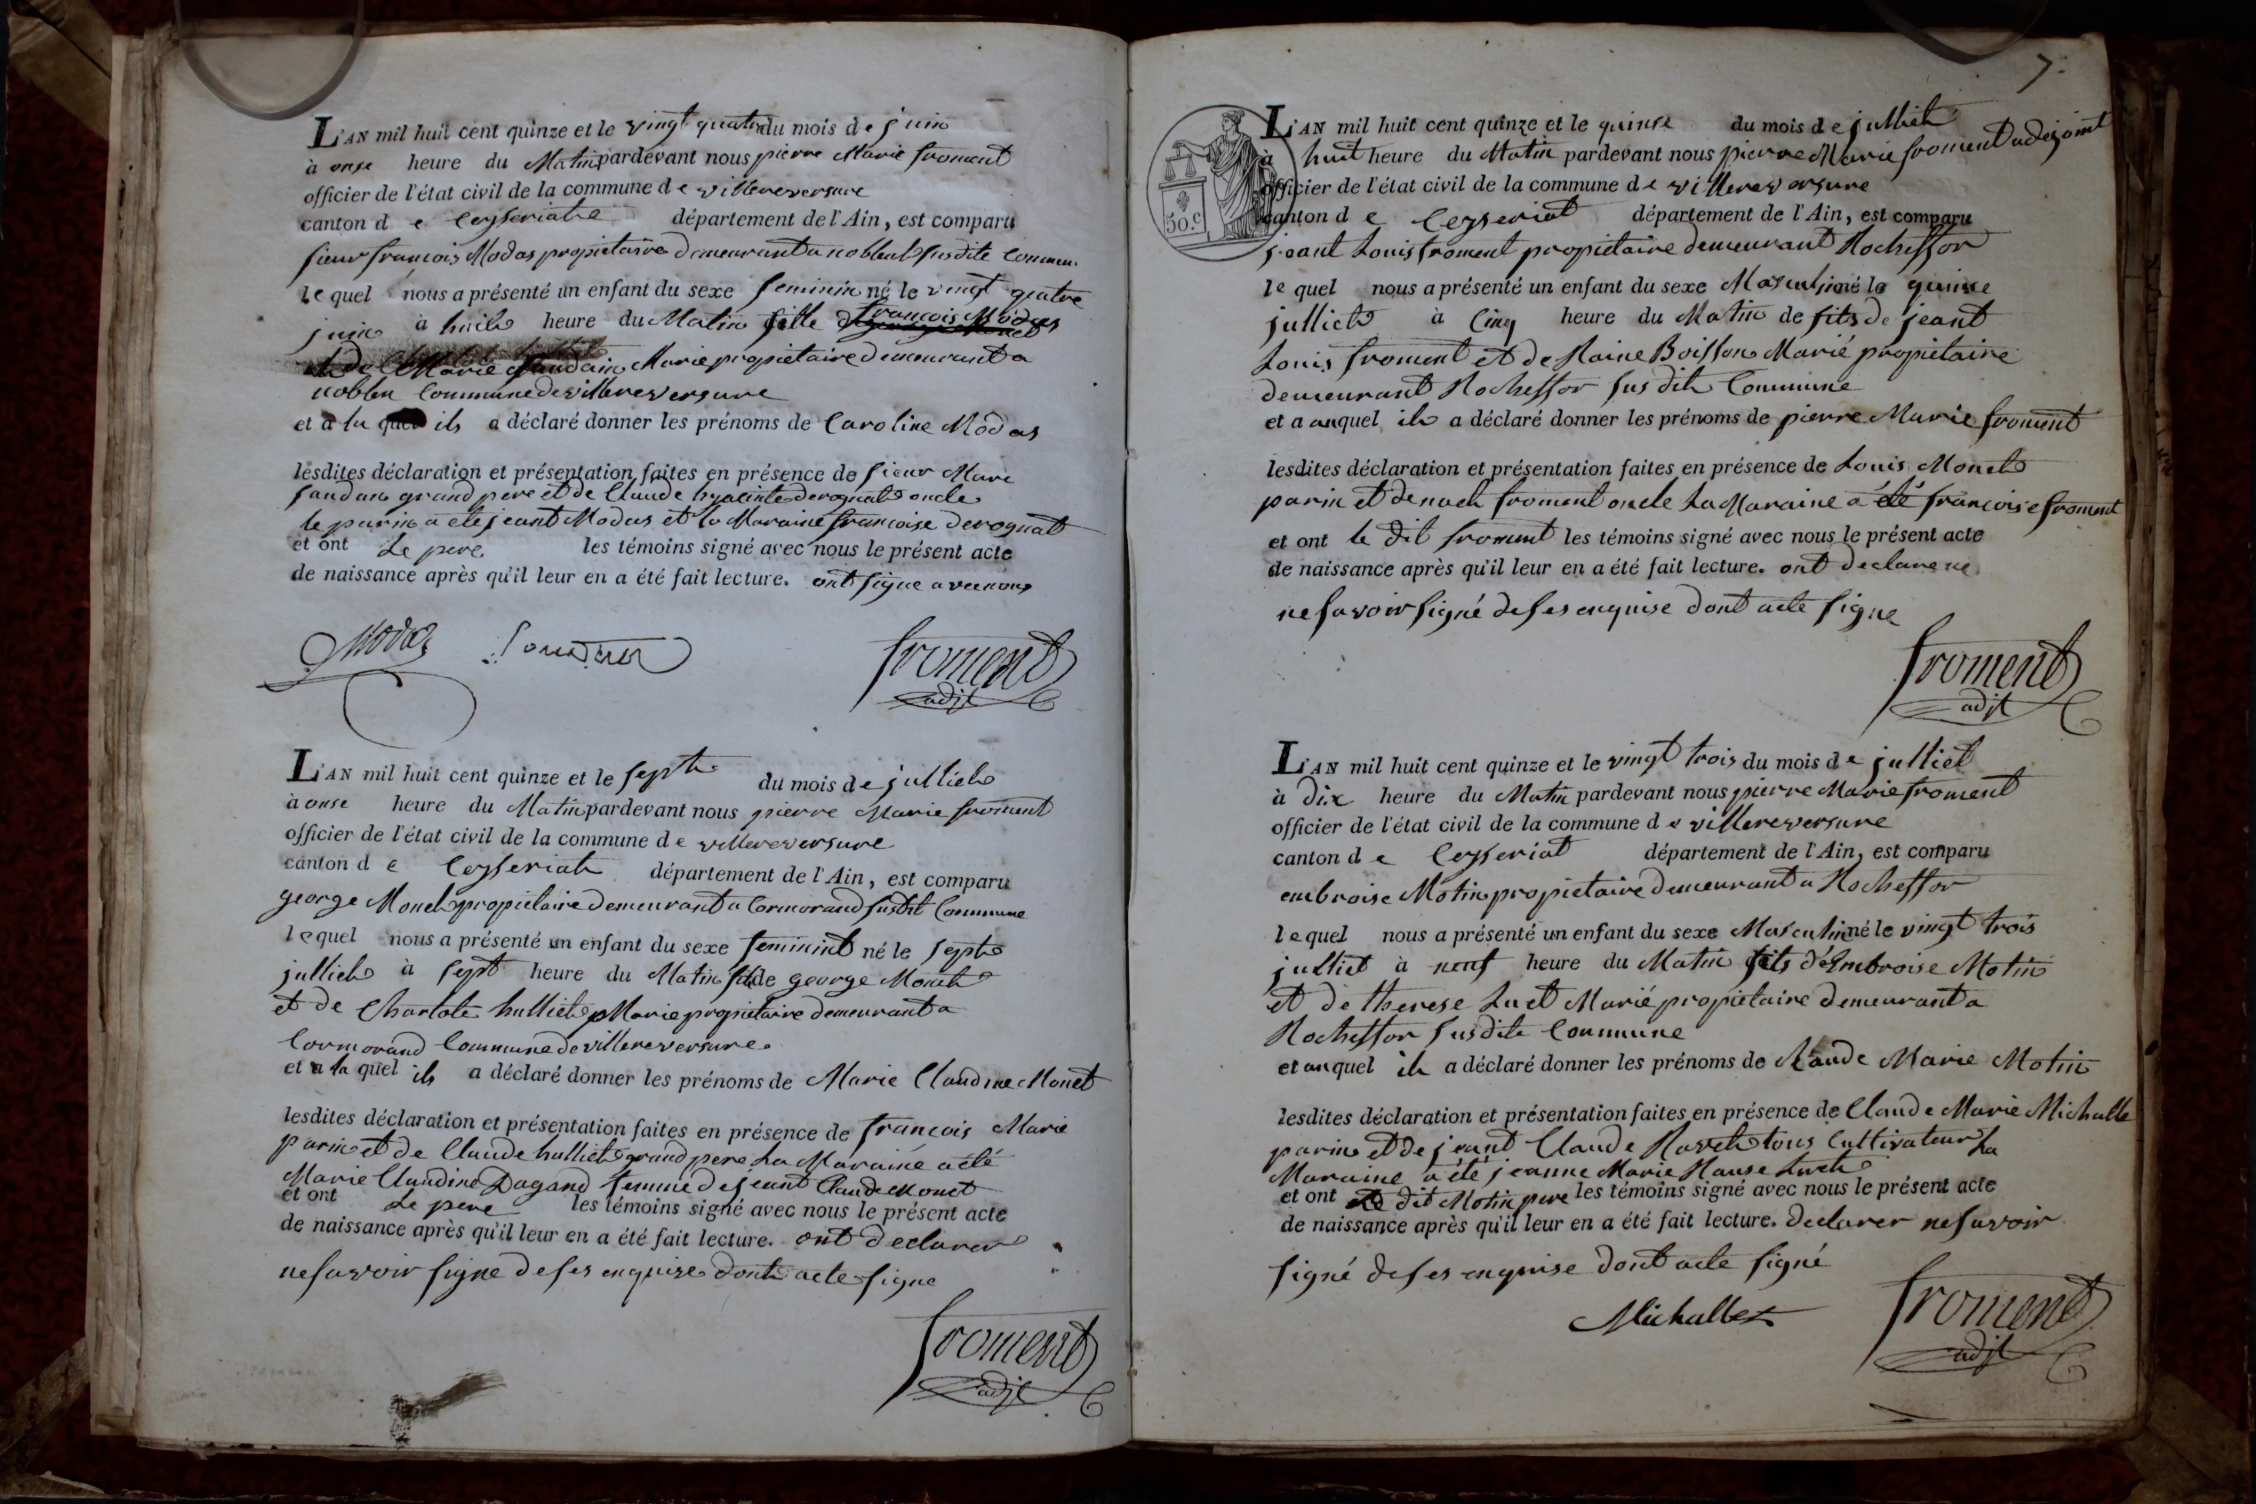 L'AN mil huit cent quinze et le vingt quatre du mois de juin
à onse heure du Matin pardevant nous pierre Marie froment
officier de l'état civil de la commune de villereversure
canton de Ceyseriat département de l'Ain, est comparu
sieur francois Modas propietaire demeurant a noblens susdite Commun.
lequel nous a présenté un enfant du sexe feminin né le vingt quatre
juin à huit heure du Matin fille de francois Modas
et de Marie Marie propietaire demeurant a
noblen Commune de villereversure
et a la quel ils a déclaré donner les prénoms de Caroline Modas
lesdites déclaration et présentation faites en présence de sieur Marc
grand pere et de Claude hyacinte derognat oncle
le parin a ete jeant Modas et la Maraine francoise derognat
et ont Le pere les témoins signé avec nous le présent acte
de naissance après qu'il leur en a été fait lecture. ont signe avec nous
Modas
froment
adjt
L'AN mil huit cent quinze et le sept du mois de julliet
à onse heure du Matin pardevant nous pierre Marie froment
officier de l'état civil de la commune de villereversure
canton de Ceyseriat département de l'Ain, est comparu
george Monet propietaire demeurant a Cormorand susdit Commune
lequel nous a présenté un enfant du sexe feminint né le sept
julliet à sept heure du Matin de george Monet
et de Charlote hulliet Marie propietaire demeurant a
Cormorand Commune de villereversure.
et a la quel ils a déclaré donner les prénoms de Marie Claudine Monet
lesdites déclaration et présentation faites en présence de francois Marie
parin et de Claude hulliet grand pere La Maraine a été
Marie Claudine Dagand femme de jeant Claude Monet
et ont Le pere les témoins signé avec nous le présent acte
de naissance après qu'il leur en a été fait lecture. ont declarer
ne savoir signe de ses enquise dont acte signe
froment
adjt
7.
L'AN mil huit cent quinze et le quinse du mois de julliet
à huit heure du Matin pardevant nous pierre Marie froment adejoint
officier de l'état civil de la commune de villereversure
canton de Ceyseriat département de l'Ain, est comparu
50.c
jeant Louis froment propietaire demeurant Rocheffor
lequel nous a présenté un enfant du sexe Masculin né le quinse
julliet à Cinq heure du Matin de fils de jeant
Louis froment et de Raine Boisson Marié propietaire
demeurant Rocheffor sus dit Commune
et a auquel il a déclaré donner les prénoms de pierre Marie froment
lesdites déclaration et présentation faites en présence de Louis Monet
parin et de froment oncle La Maraine a été françoise froment
et ont le dit froment les témoins signé avec nous le présent acte
de naissance après qu'il leur en a été fait lecture. ont declare ne
ne savoir signé de ses enquise dont acte signe
froment
adjt
L'AN mil huit cent quinze et le vingt trois du mois de julliet
à dix heure du Matin pardevant nous pierre Marie froment
officier de l'état civil de la commune de villereversure
canton de Ceyseriat département de l'Ain, est comparu
embroise Motin propietaire demeurant a Rocheffor
lequel nous a présenté un enfant du sexe Masculin né le vingt trois
julliet à neuf heure du Matin fils d'Embroise Motin
et de therese Luet Marié propietaire demeurant a
Rocheffor susdite Commune
et auquel il a déclaré donner les prénoms de Claude Marie Motin
lesdites déclaration et présentation faites en présence de Claude Marie Michalle
parin et de jeant Claude Ravet tous Cultivateur La
Maraine a été jeanne Marie
et ont le dit Motin pere les témoins signé avec nous le présent acte
de naissance après qu'il leur en a été fait lecture. declarer ne savoir
signé de ses enquise dont acte signé
Michallet
froment
adjt